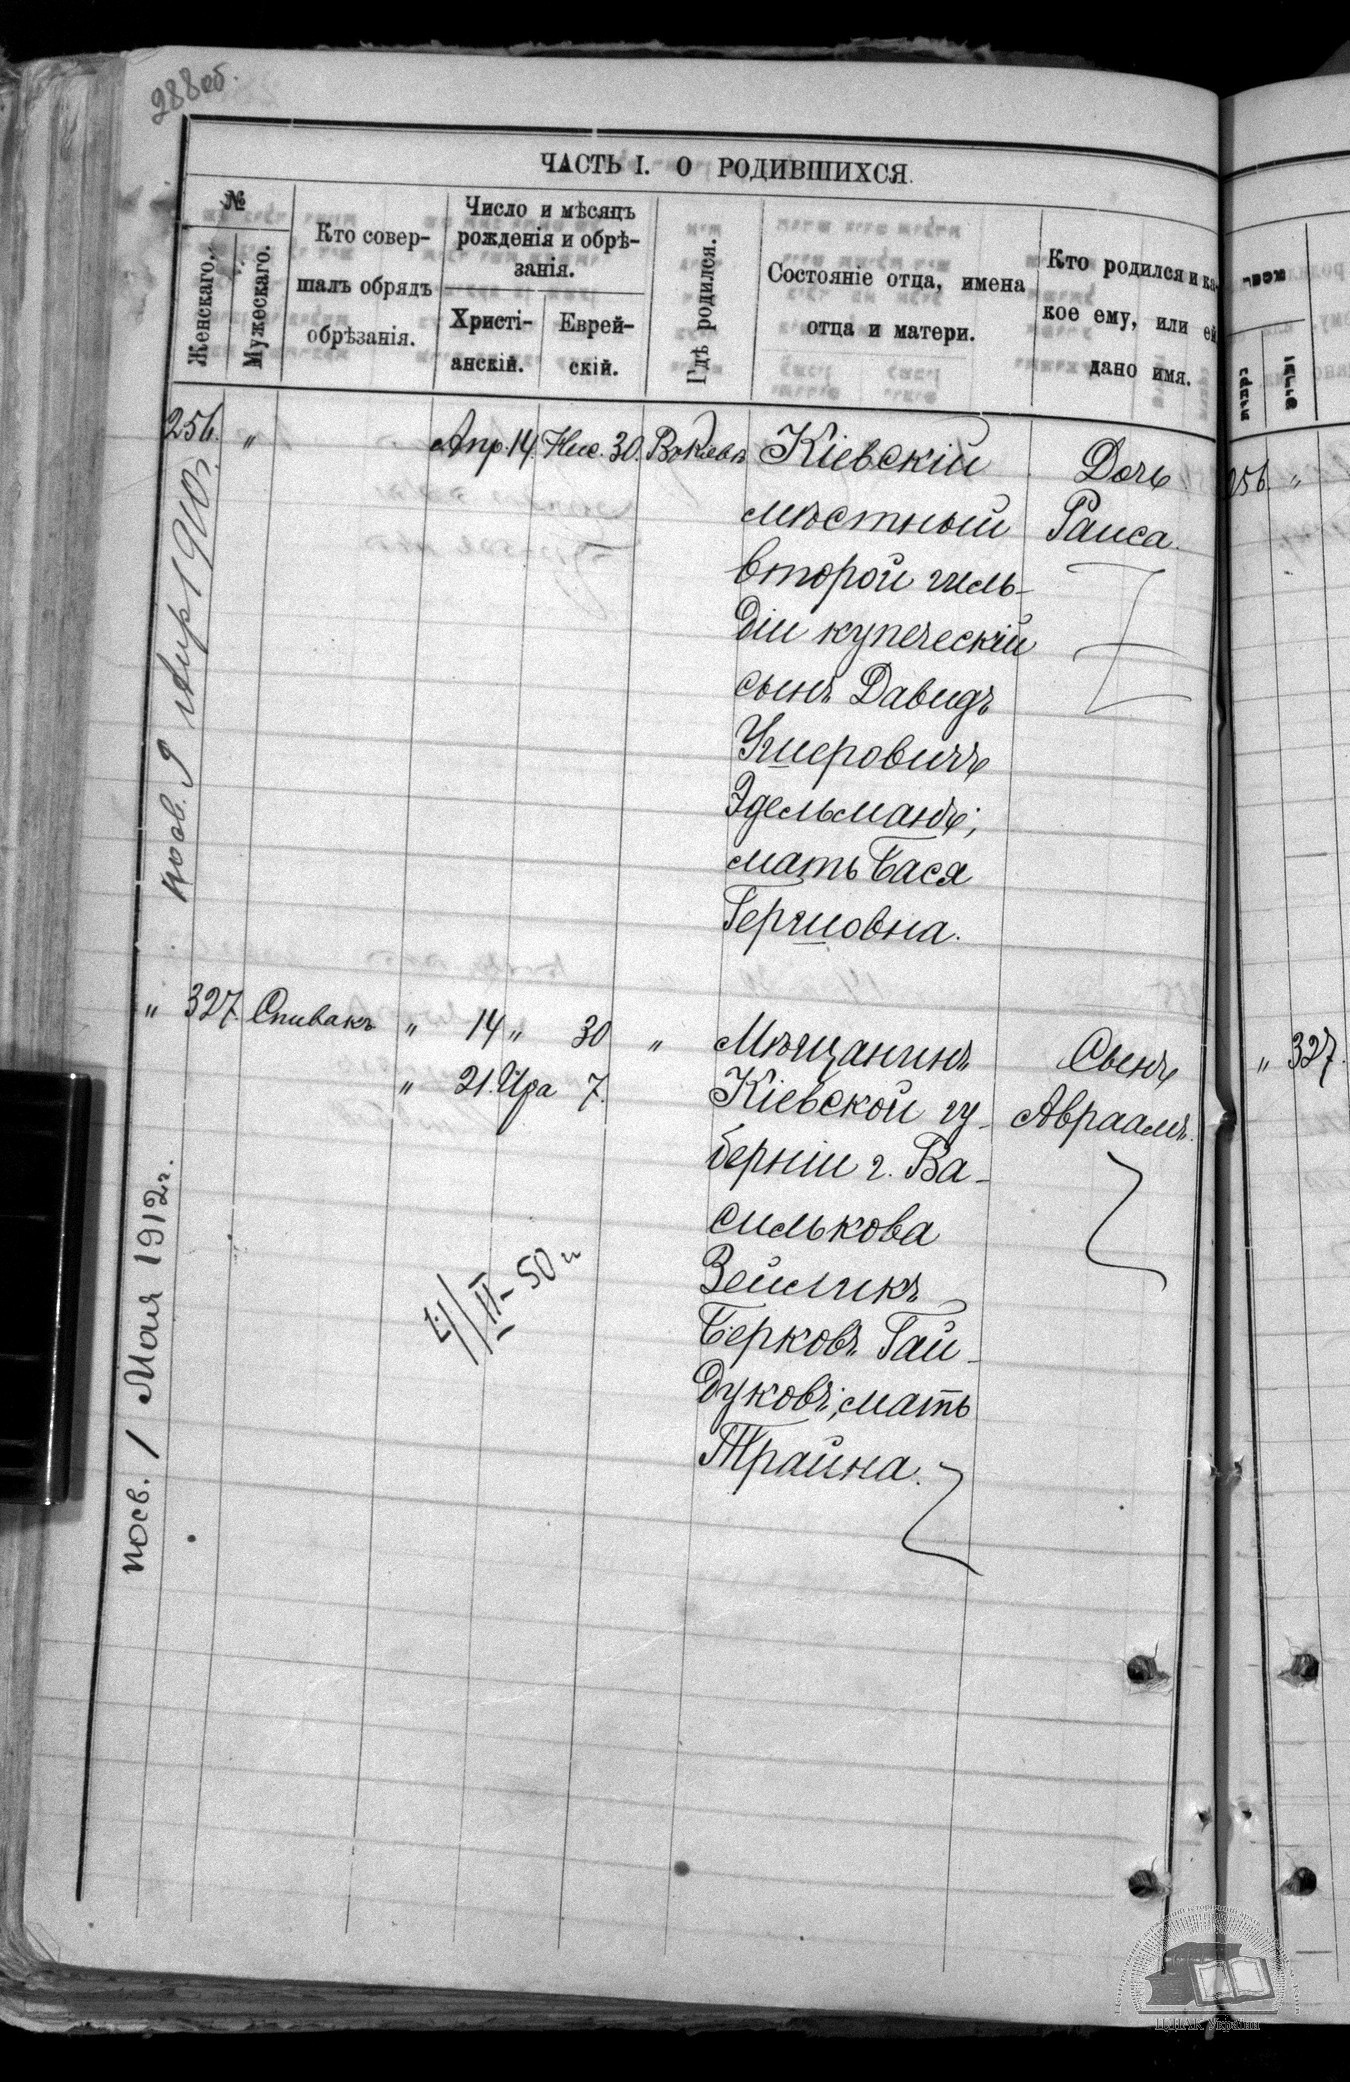 288 об.
ЧАСТЬ I. О РОДИВШИХСЯ.
№
Женскаго.
Мужескаго.
Кто совер-
шалъ обрядъ
обрѣзанія.
Число и мѣсяцъ
рожденія и обрѣ-
занія.
Христі-
анскій.
Еврей-
скій.
Гдѣ родился.
Состояніе отца, имена
отца и матери.
Кто родился и ка-
кое ему, или ей
дано имя.
256. " Апр. 14. Нис. 30. В Кіевѣ
Кіевскій
мѣстный
второй гиль-
діи купеческій
сынъ Давидъ
Ушеровичъ
Эдельманъ;
мать Бася
Гершовна.
Дочь
Раиса.
1910 г.
" 327. Спивакъ " 14 " 30 "
" 21. Ира 7.
Мѣщанинъ
Кіевской гу-
берніи г. Ва-
силькова
Зейликъ
Берковъ Гай-
дуковъ; мать
Трайна.
Сынъ
Авраамъ.
посв. 1 Мая 1912 г.
4/II-50 г
256. "
" 327.
ЦДІАК України